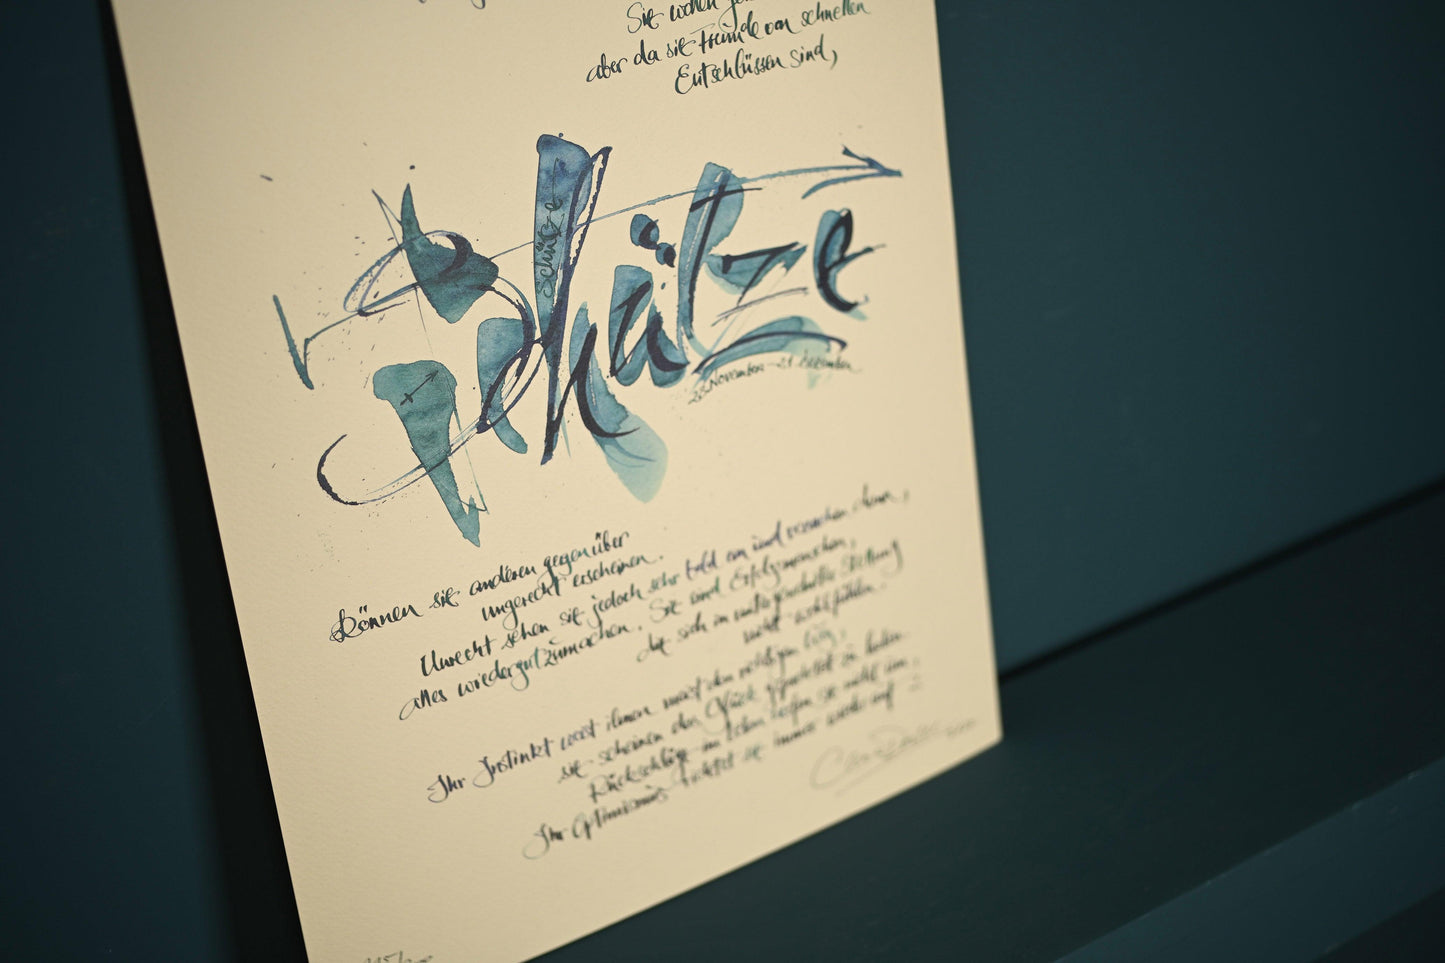 Sie
aber da sie Freunde von schnellen
Entschlüssen sind,
Schütze
Schütze
23. November – 21. Dezember
können sie anderen gegenüber
ungerecht erscheinen.
Unrecht sehen sie jedoch sehr bald ein und versuchen dann,
alles wiedergutzumachen. Sie sind Erfolgsmenschen,
die sich in untergeordneter Stellung
nicht wohlfühlen.
Ihr Instinkt weist ihnen meist den richtigen Weg,
sie scheinen das Glück gepachtet zu haben.
Rückschläge im Leben werfen sie nicht um,
Ihr Optimismus richtet sie immer wieder auf